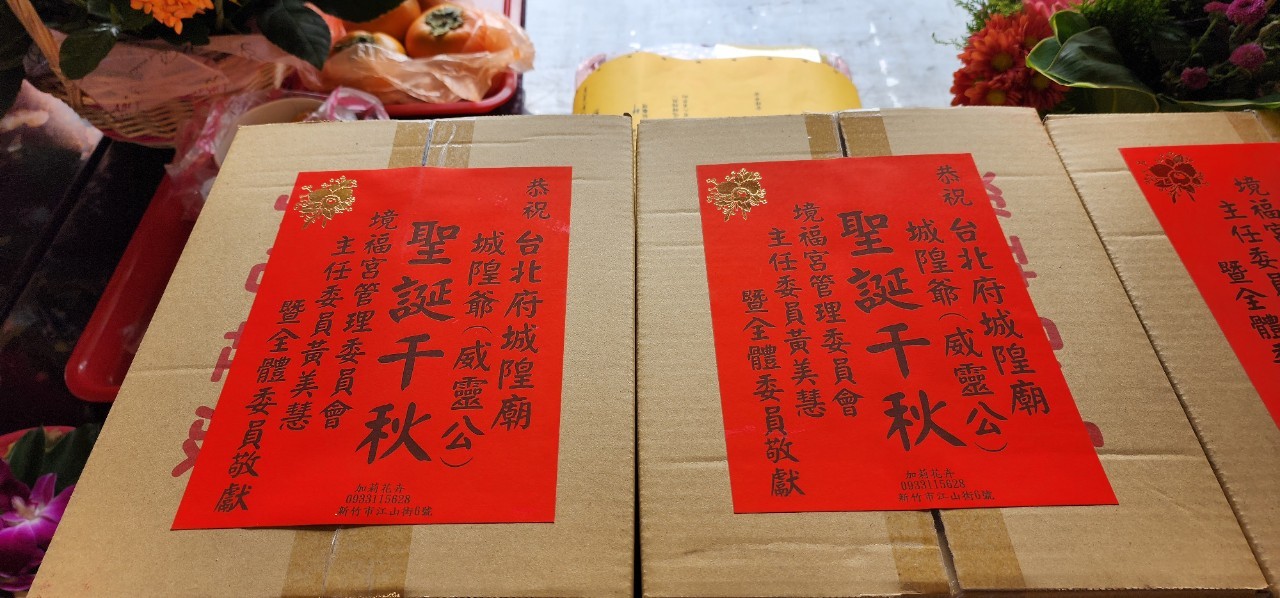 恭祝
台北府城隍廟
城隍爺（威靈公）
聖誕千秋
境福宮管理委員會
主任委員黃美慧
暨全體委員敬獻
加莉花卉
0933115628
新竹市江山街6號
恭祝
台北府城隍廟
城隍爺（威靈公）
聖誕千秋
境福宮管理委員會
主任委員黃美慧
暨全體委員敬獻
加莉花卉
0933115628
新竹市江山街6號
境福宮管理委
主任委員
暨全體委